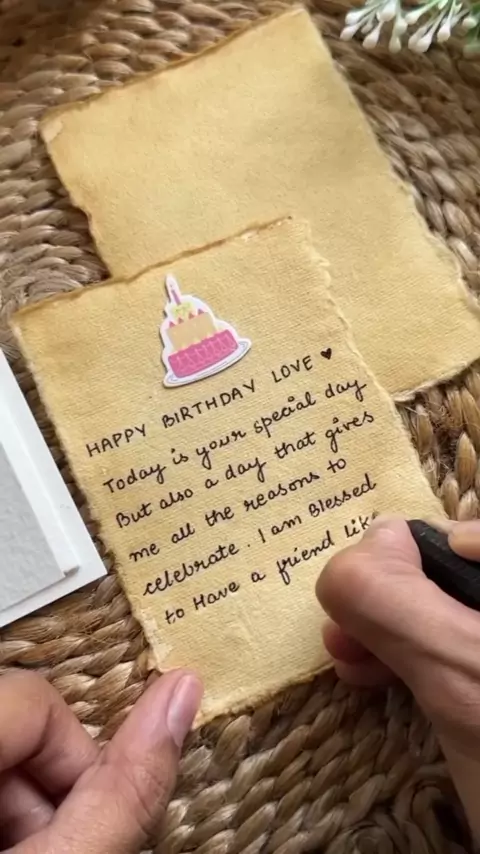 HAPPY BIRTHDAY LOVE ♥
Today is your special day
But also a day that gives
me all the reasons to
celebrate. I am Blessed
to Have a friend like